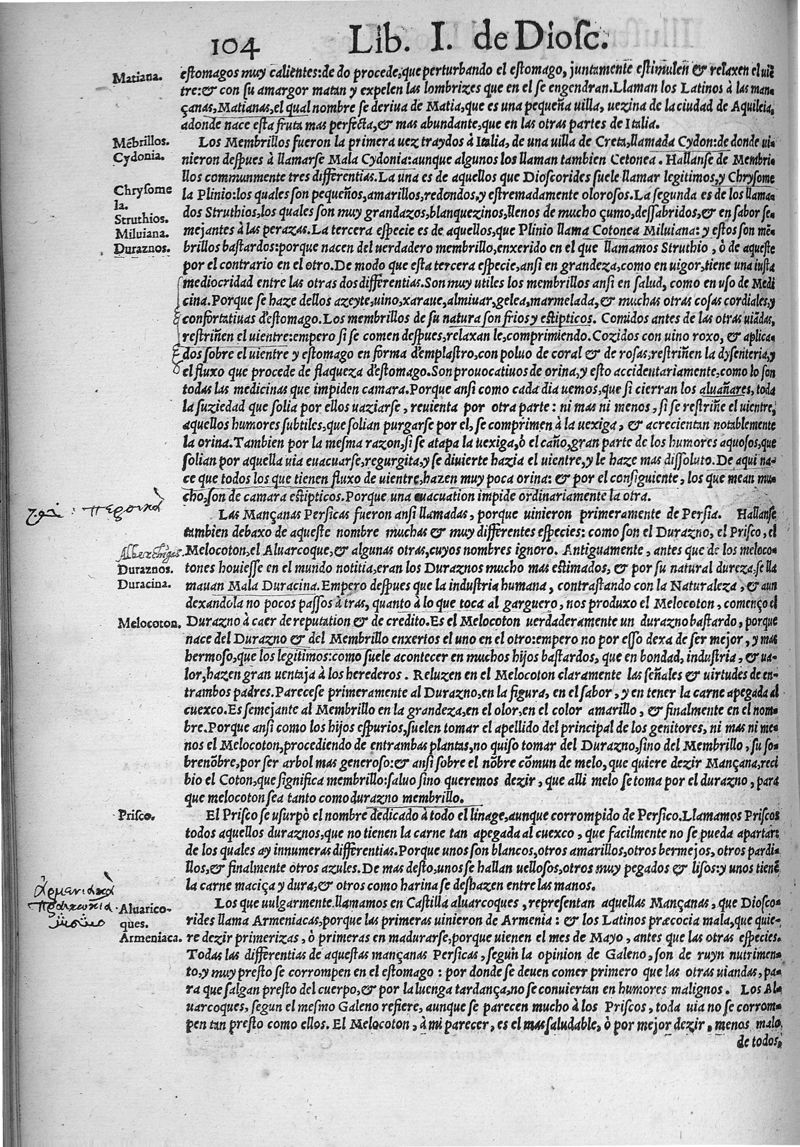 104 Lib. I. de Diosc.
Matiana.
estomagos muy calientes: de do procede, que perturbando el estomago, juntamente estimulen & relaxen el uiẽ
tre: & con su amargor matan y expelen las lombrizes que en el se engendran. Llaman los Latinos à las man
çanas, Matianas, el qual nombre se deriua de Matia, que es una pequeña uilla, uezina de la ciudad de Aquileia,
adonde nace esta fruta mas perfecta, & mas abundante, que en las otras partes de Italia.
Mẽbrillos.
Cydonia.
Los Membrillos fueron la primera uez traydos à Italia, de una uilla de Creta, llamada Cydon: de donde ui-
nieron despues à llamarse Mala Cydonia: aunque algunos los llaman tambien Cetonea. Hallanse de Membri-
llos communmente tres differentias. La una es de aquellos que Dioscorides suele llamar legitimos, y Chrysome
Chrysome
la.
la Plinio: los quales son pequeños, amarillos, redondos, y estremadamente olorosos. La segunda es de los llama-
Struthios.
dos Struthios, los quales son muy grandazos, blanquezinos, llenos de mucho çumo, dessabridos, & en sabor se
Miluiana.
mejantes à las perazas. La tercera especie es de aquellos, que Plinio llama Cotonea Miluiana: y estos son mẽ
Duraznos.
brillos bastardos: porque nacen del uerdadero membrillo, enxerido en el que llamamos Struthio, ò de aqueste
por el contrario en el otro. De modo que esta tercera especie, ansi en grandeza, como en uigor, tiene una iusta
mediocridad entre las otras dos differentias. Son muy utiles los membrillos ansi en salud, como en uso de Medi
cina. Porque se haze dellos azeyte, uino, xaraue, almiuar, gelea, marmelada, & muchas otras cosas cordiales, y
confortatiuas d'estomago. Los membrillos de su natura son frios y estipticos. Comidos antes de las otras uiãdas,
restriñen el uientre: empero si se comen despues, relaxan le, comprimiendo. Cozidos con uino roxo, & aplica
dos sobre el uientre y estomago en forma d'emplastro, con poluo de coral & de rosas, restriñen la dysenteria, y
el fluxo que procede de flaqueza d'estomago. Son prouocatiuos de orina, y esto accidentariamente, como lo son
todas las medicinas que impiden camara. Porque ansi como cada dia uemos, que si cierran los aluañares, toda
la suziedad que solia por ellos uaziarse, reuienta por otra parte: ni mas ni menos, si se restriñe el uientre,
aquellos humores subtiles, que solian purgarse por el, se comprimen à la uexiga, & acrecientan notablemente
la orina. Tambien por la mesma razon, si se atapa la uexiga, ò el caño, gran parte de los humores aquosos, que
solian por aquella uia euacuarse, regurgita, y se diuierte hazia el uientre, y le haze mas dissoluto. De aqui na-
ce que todos los que tienen fluxo de uientre, hazen muy poca orina: & por el consiguiente, los que mean mu-
cho, son de camara estipticos. Porque una euacuation impide ordinariamente la otra.
Las Mançanas Persicas fueron ansi llamadas, porque uinieron primeramente de Persia. Hallanse
tambien debaxo de aqueste nombre muchas & muy differentes especies: como son el Durazno, el Prisco, el
Melocoton, el Aluarcoque, & algunas otras, cuyos nombres ignoro. Antiguamente, antes que de los meloco-
Duraznos.
tones houiesse en el mundo notitia, eran los Duraznos mucho mas estimados, & por su natural dureza, se lla
Duracina.
mauan Mala Duracina. Empero despues que la industria humana, contrastando con la Naturaleza, & aun
dexandola no pocos passos à tras, quanto à lo que toca al garguero, nos produxo el Melocoton, començo el
Melocoton.
Durazno à caer de reputation & de credito. Es el Melocoton uerdaderamente un durazno bastardo, porque
nace del Durazno & del Membrillo enxertos el uno en el otro: empero no por esso dexa de ser mejor, y mas
hermoso, que los legitimos: como suele acontecer en muchos hijos bastardos, que en bondad, industria, & ua-
lor, hazen gran uentaja à los herederos. Reluzen en el Melocoton claramente las señales & uirtudes de en-
trambos padres. Parecese primeramente al Durazno, en la figura, en el sabor, y en tener la carne apegada al
cuexco. Es semejante al Membrillo en la grandeza, en el olor, en el color amarillo, & finalmente en el nom-
bre. Porque ansi como los hijos espurios, suelen tomar el apellido del principal de los genitores, ni mas ni me-
nos el Melocoton, procediendo de entrambas plantas, no quiso tomar del Durazno, sino del Membrillo, su so-
brenõbre, por ser arbol mas generoso: & ansi sobre el nõbre cõmun de melo, que quiere dezir Mançana, reci
bio el Coton, que significa membrillo: saluo sino queremos dezir, que alli melo se toma por el durazno, para
que melocoton sea tanto como durazno membrillo.
Prisco.
El Prisco se usurpò el nombre dedicado à todo el linage, aunque corrompido de Persico. Llamamos Priscos
todos aquellos duraznos, que no tienen la carne tan apegada al cuexco, que facilmente no se pueda apartar:
de los quales ay innumeras differentias. Porque unos son blancos, otros amarillos, otros bermejos, otros pardi-
llos, & finalmente otros azules. De mas desto, unos se hallan uellosos, otros muy pegados & lisos: y unos tienẽ
la carne maciça y dura, & otros como harina se deshazen entre las manos.
Aluarico-
ques.
Los que uulgarmente llamamos en Castilla aluarcoques, representan aquellas Mançanas, que Diosco-
rides llama Armeniacas, porque las primeras uinieron de Armenia: & los Latinos præcocia mala, que quie-
Armeniaca.
re dezir primerizas, ò primeras en madurarse, porque uienen el mes de Mayo, antes que las otras especies.
Todas las differentias de aquestas mançanas Persicas, segun la opinion de Galeno, son de ruyn nutrimen-
to, y muy presto se corrompen en el estomago: por donde se deuen comer primero que las otras uiandas, pa-
ra que salgan presto del cuerpo, & por la luenga tardança, no se conuiertan en humores malignos. Los Al-
uarcoques, segun el mesmo Galeno refiere, aunque se parecen mucho à los Priscos, toda uia no se corrom-
pen tan presto como ellos. El Melocoton, à mi parecer, es el mas saludable, ò por mejor dezir, menos malo
de todos,